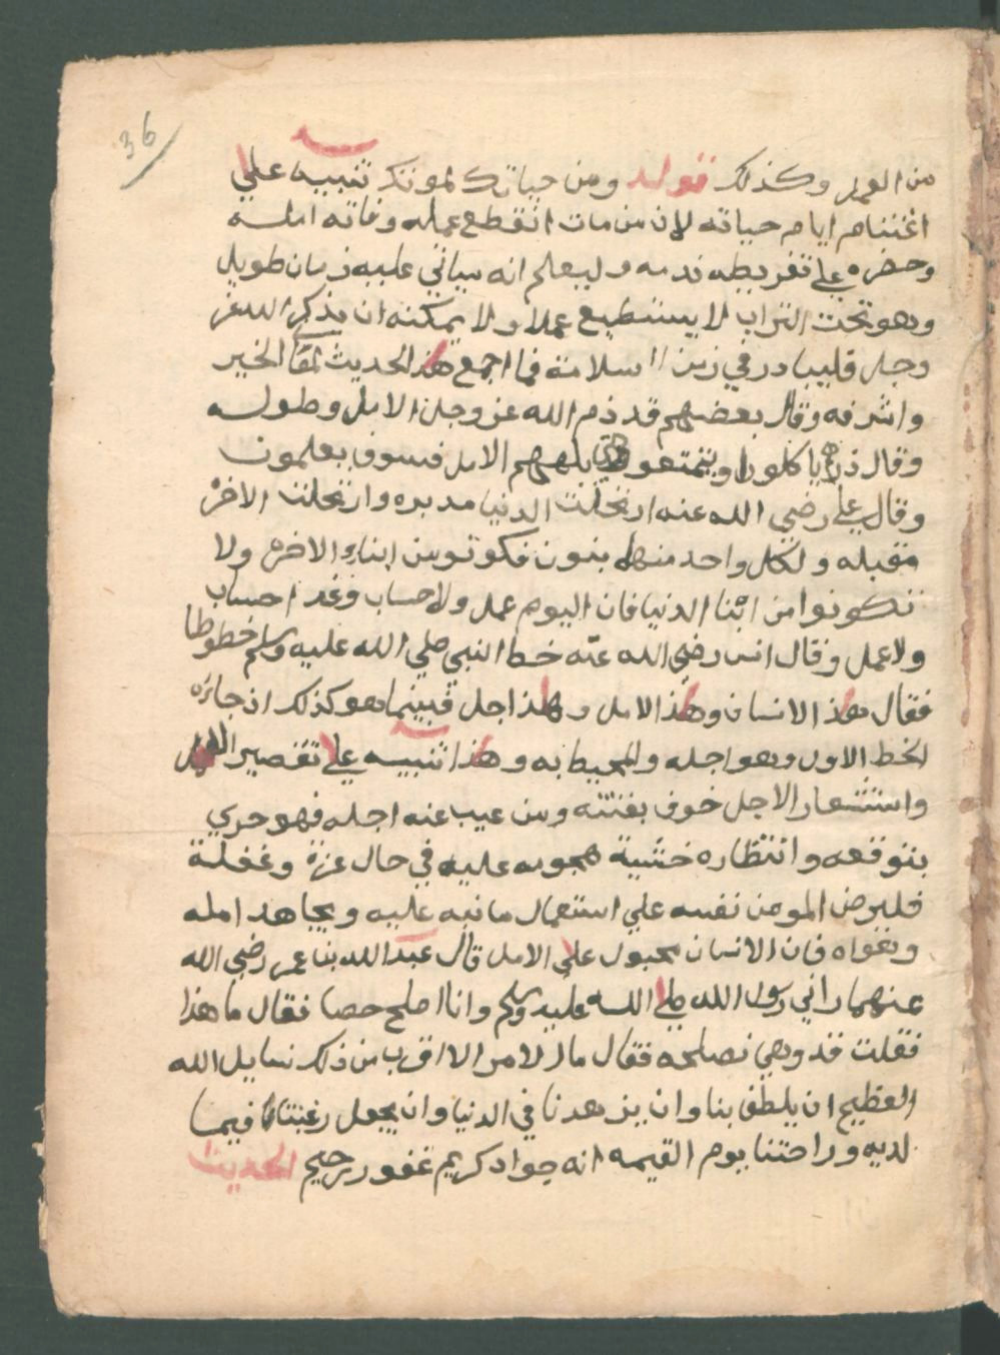 36
من العمر وكذلك قوله ومن حياتك لموتك تنبيه على
اغتنام ايام حياته لان من مات انقطع عمله وفاته امله
وحضره على تفريطه ندمه وليعلم انه سياتي عليه زمان طويل
وهو تحت التراب لا يستطيع عملا ولا يمكنه ان يذكر الله عز
وجل فليبادر في زمن السلامة فما اجمع هذا الحديث لمعا الخير
واشرفه وقال بعضهم قد ذم الله عز وجل الامل وطوله
وقال ذرهم ياكلوا ويتمتعوا ويلههم الامل فسوف يعلمون
وقال علي رضي الله عنه ارتحلت الدنيا مدبره وارتحلت الاخرة
مقبله ولكل واحد منهما بنون فكونوا من ابناء الاخرة ولا
تتكونوا من ابنا الدنيا فان اليوم عمل ولا حساب وغدا حساب
ولا عمل وقال انس رضي الله عنه خط النبي صلي الله عليه وسلم خطوطا
فقال هذا الانسان وهذا الامل وهذا اجل فبينما هو كذلك اذ جائزه
الخط الاول وهو اجله والمحيط به وهذا تنبيه على تقصير
واستشعار الاجل خوف بغتته ومن غيب عنه اجله فهو حري
بتوقعه وانتظاره خشية هجومه عليه في حال غرة وغفلة
فليرض المومن نفسه علي استعمال ما نبه عليه ويجاهد امله
وهواه فان الانسان مجبول على الامل قال عبد الله بن عمر رضي الله
عنهما راني رسول الله صلى الله عليه وسلم وانا اصلح حصا فقال ما هذا
فقلت قد وهي نصلحه فقال ما الامر الا اقرب من ذلك نسايل الله
العظيم ان يلطف بنا وان يزهدنا في الدنيا وان يجعل رغبتنا فيما
لديه وراحتنا يوم القيمه انه جواد كريم غفور رحيم الحديث